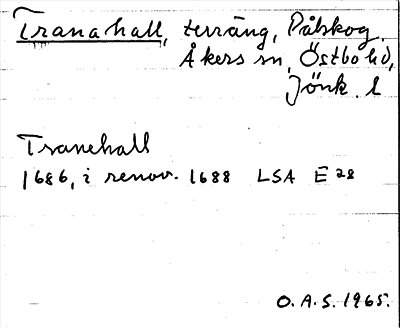 Tranahall, terräng, Pålskog,
Åkers sn, Östbo hd,
Jönk. l
Tranehall
1686, i renov. 1688 LSA E 28
O.A.S. 1965.